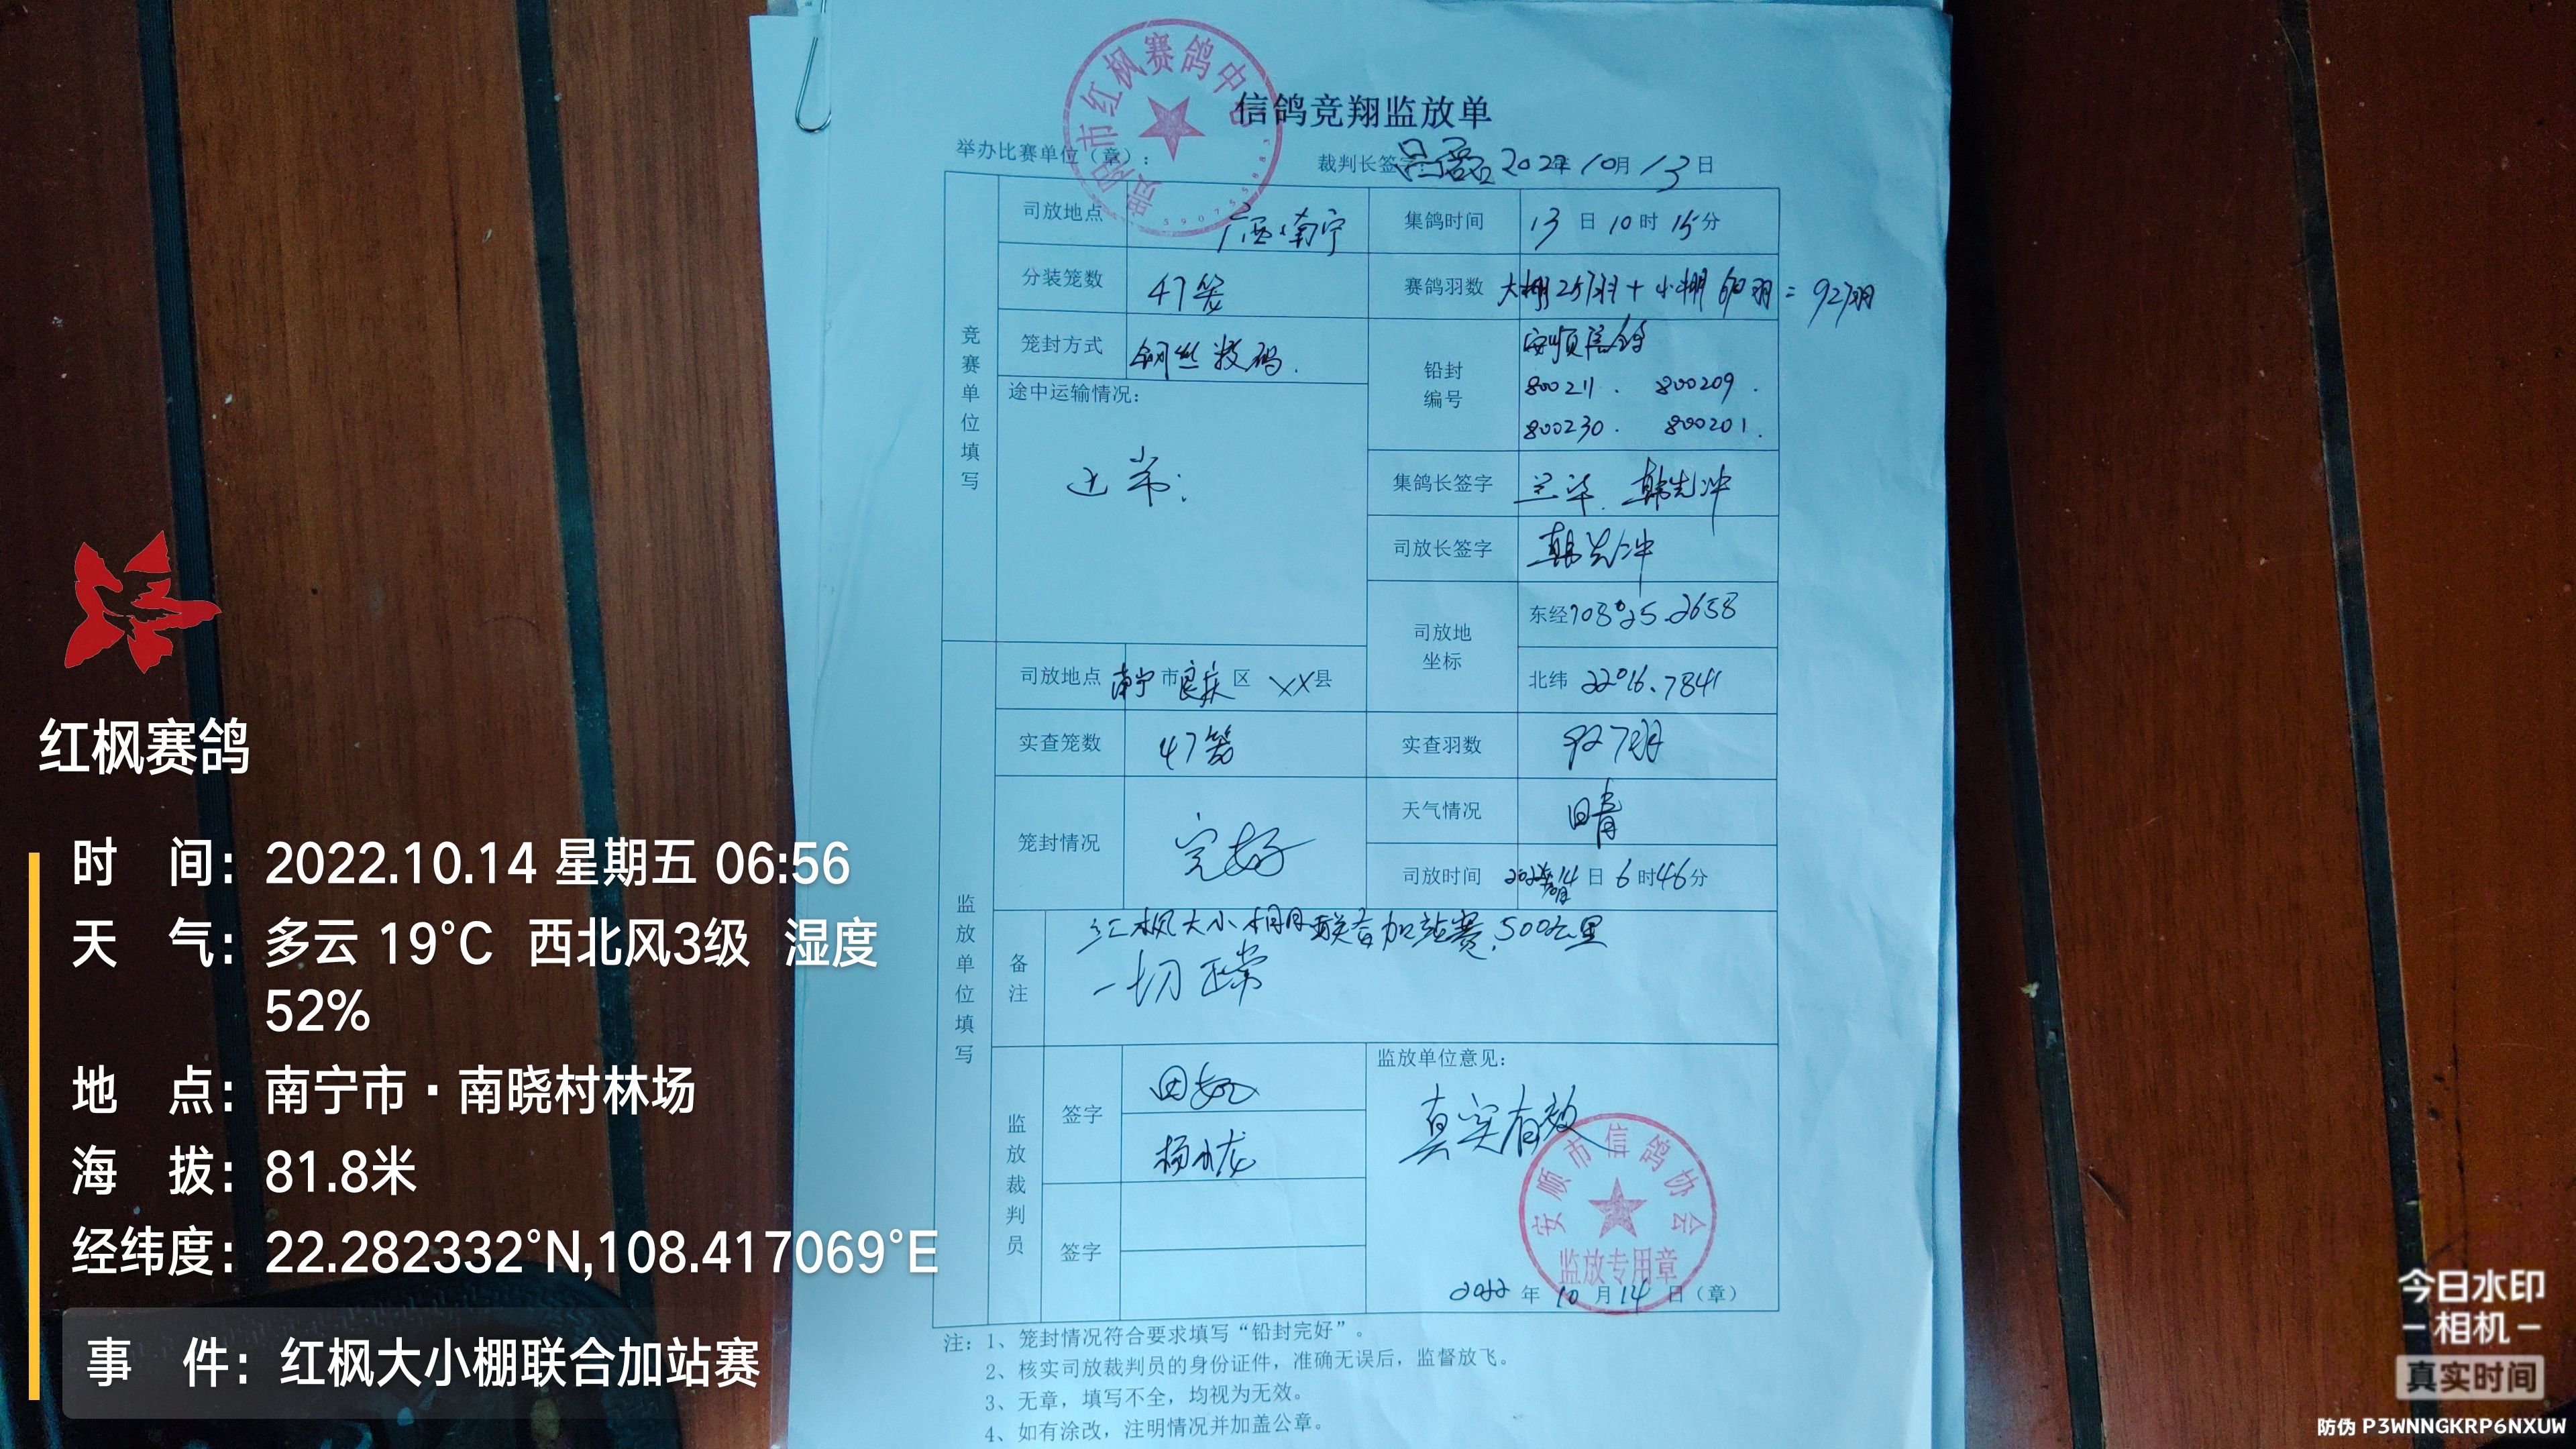 信鸽竞翔监放单
举办比赛单位（章）：
裁判长签字 2022年10月13日
贵阳市红枫赛鸽中心
竞赛单位填写
司放地点 广西南宁 集鸽时间 13日10时15分
分装笼数 47笼 赛鸽羽数 大棚257羽+小棚 羽=927羽
笼封方式 钢丝数码. 铅封编号 安顺信鸽
800211. 800209.
800230. 800201.
途中运输情况：
正常：
集鸽长签字 韩先冲
司放长签字 韩先冲
司放地坐标 东经108°25.2658
北纬 22°16.7841
监放单位填写
司放地点 南宁市良庆区 XX县
实查笼数 47笼 实查羽数 927羽
笼封情况 完好 天气情况 晴
司放时间 14日6时46分
备注 红枫大小棚联合加站赛.500公里
一切正常
监放裁判员 签字
签字
杨小龙
监放单位意见：
真实有效
安顺市信鸽协会
监放专用章
2022年10月14日（章）
注：1、笼封情况符合要求填写“铅封完好”。
2、核实司放裁判员的身份证件，准确无误后，监督放飞。
3、无章，填写不全，均视为无效。
4、如有涂改，注明情况并加盖公章。
红枫赛鸽
时 间：2022.10.14 星期五 06:56
天 气：多云 19°C 西北风3级 湿度
52%
地 点：南宁市·南晓村林场
海 拔：81.8米
经纬度：22.282332°N,108.417069°E
事 件：红枫大小棚联合加站赛
今日水印
相机
真实时间
防伪 P3WNNGKRP6NXUW